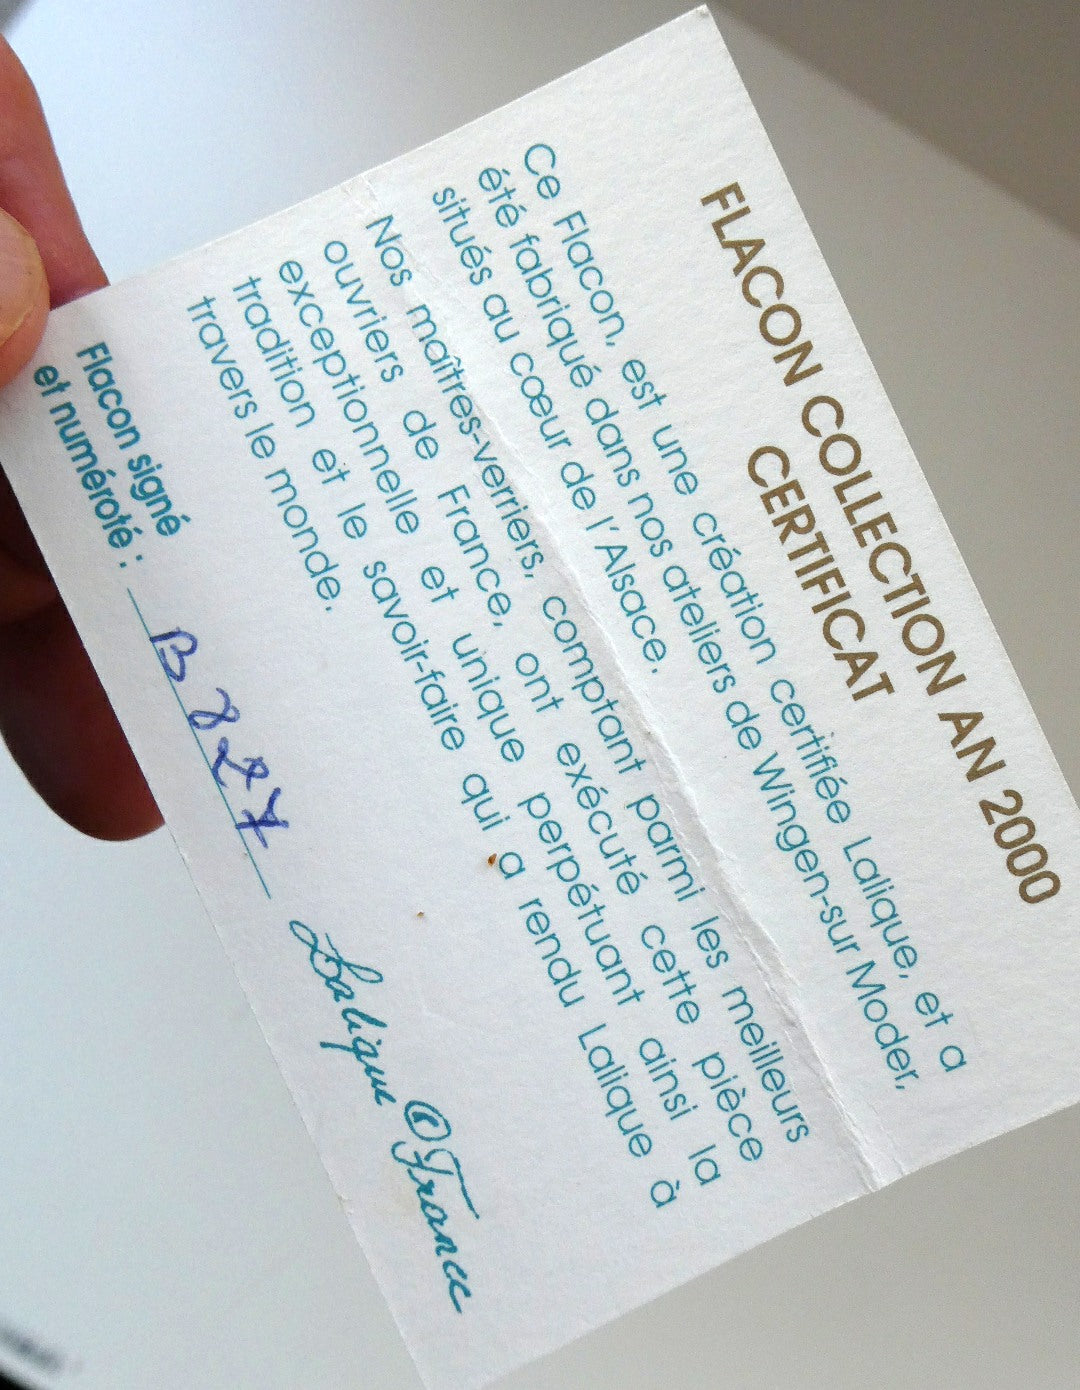 FLACON COLLECTION AN 2000
CERTIFICAT
Ce Flacon, est une création certifiée Lalique, et a
été fabriqué dans nos ateliers de Wingen-sur Moder,
situés au cœur de l'Alsace.
Nos maîtres-verriers, comptant parmi les meilleurs
ouvriers de France, ont exécuté cette pièce
exceptionnelle et unique perpétuant ainsi la
tradition et le savoir-faire qui a rendu Lalique à
travers le monde.
Flacon signé
et numéroté : B827
Lalique © France